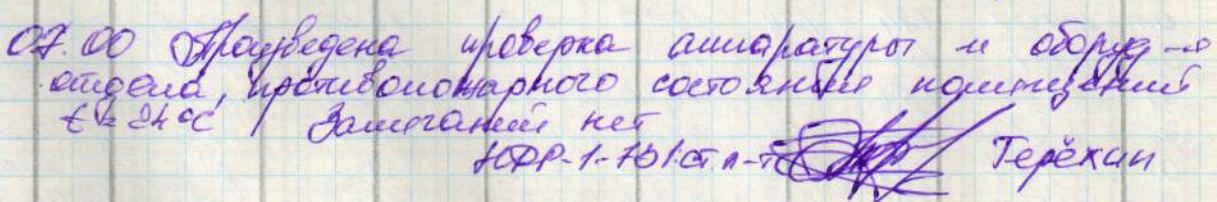 07.00 Произведена проверка аппаратуры и оборуд-я
отдела, противопожарного состояния помещений
t = 24°C Замечаний нет
ст. л-т Терёхин